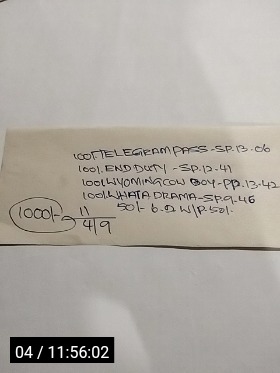 100/.TELEGRAM PASS-S.P.13-06
100/.END DUTY-S.P.12-41
100/.WYOMING COW BOY-P.P.13-42
100/.WHAT A DRAMA-S.P.9-46
50/- 6.2 W/P.50/-
1000/-
11
4/9
04 / 11:56:02